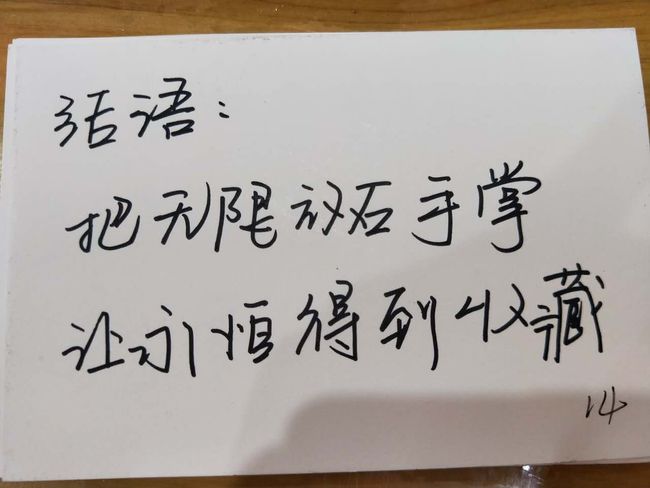 结语：
把无限放在手掌
让永恒得到收藏
14